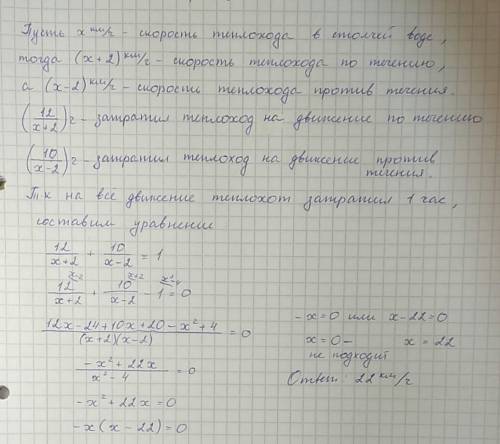 Пусть x км/г - скорость теплохода в столчей воде,
тогда (x+2) км/г - скорость теплохода по течению,
а (x-2) км/г - скорость теплохода против течения.
(12/(x+2)) г - затратил теплоход на движение по течению
(10/(x-2)) г - затратил теплоход на движение против
течения.
Т к на все движение теплохот затратил 1 час,
составим уравнение
12/(x+2) + 10/(x-2) = 1
12/(x+2) ^(x-2) + 10/(x-2) ^(x+2) - 1 ^(x²-4) = 0
(12x-24+10x+20-x²+4)/((x+2)(x-2)) = 0
(-x²+22x)/(x²-4) = 0
-x²+22x=0
-x(x-22)=0
-x=0 или x-22=0
x=0- x=22
не подходит
Ответ: 22 км/г